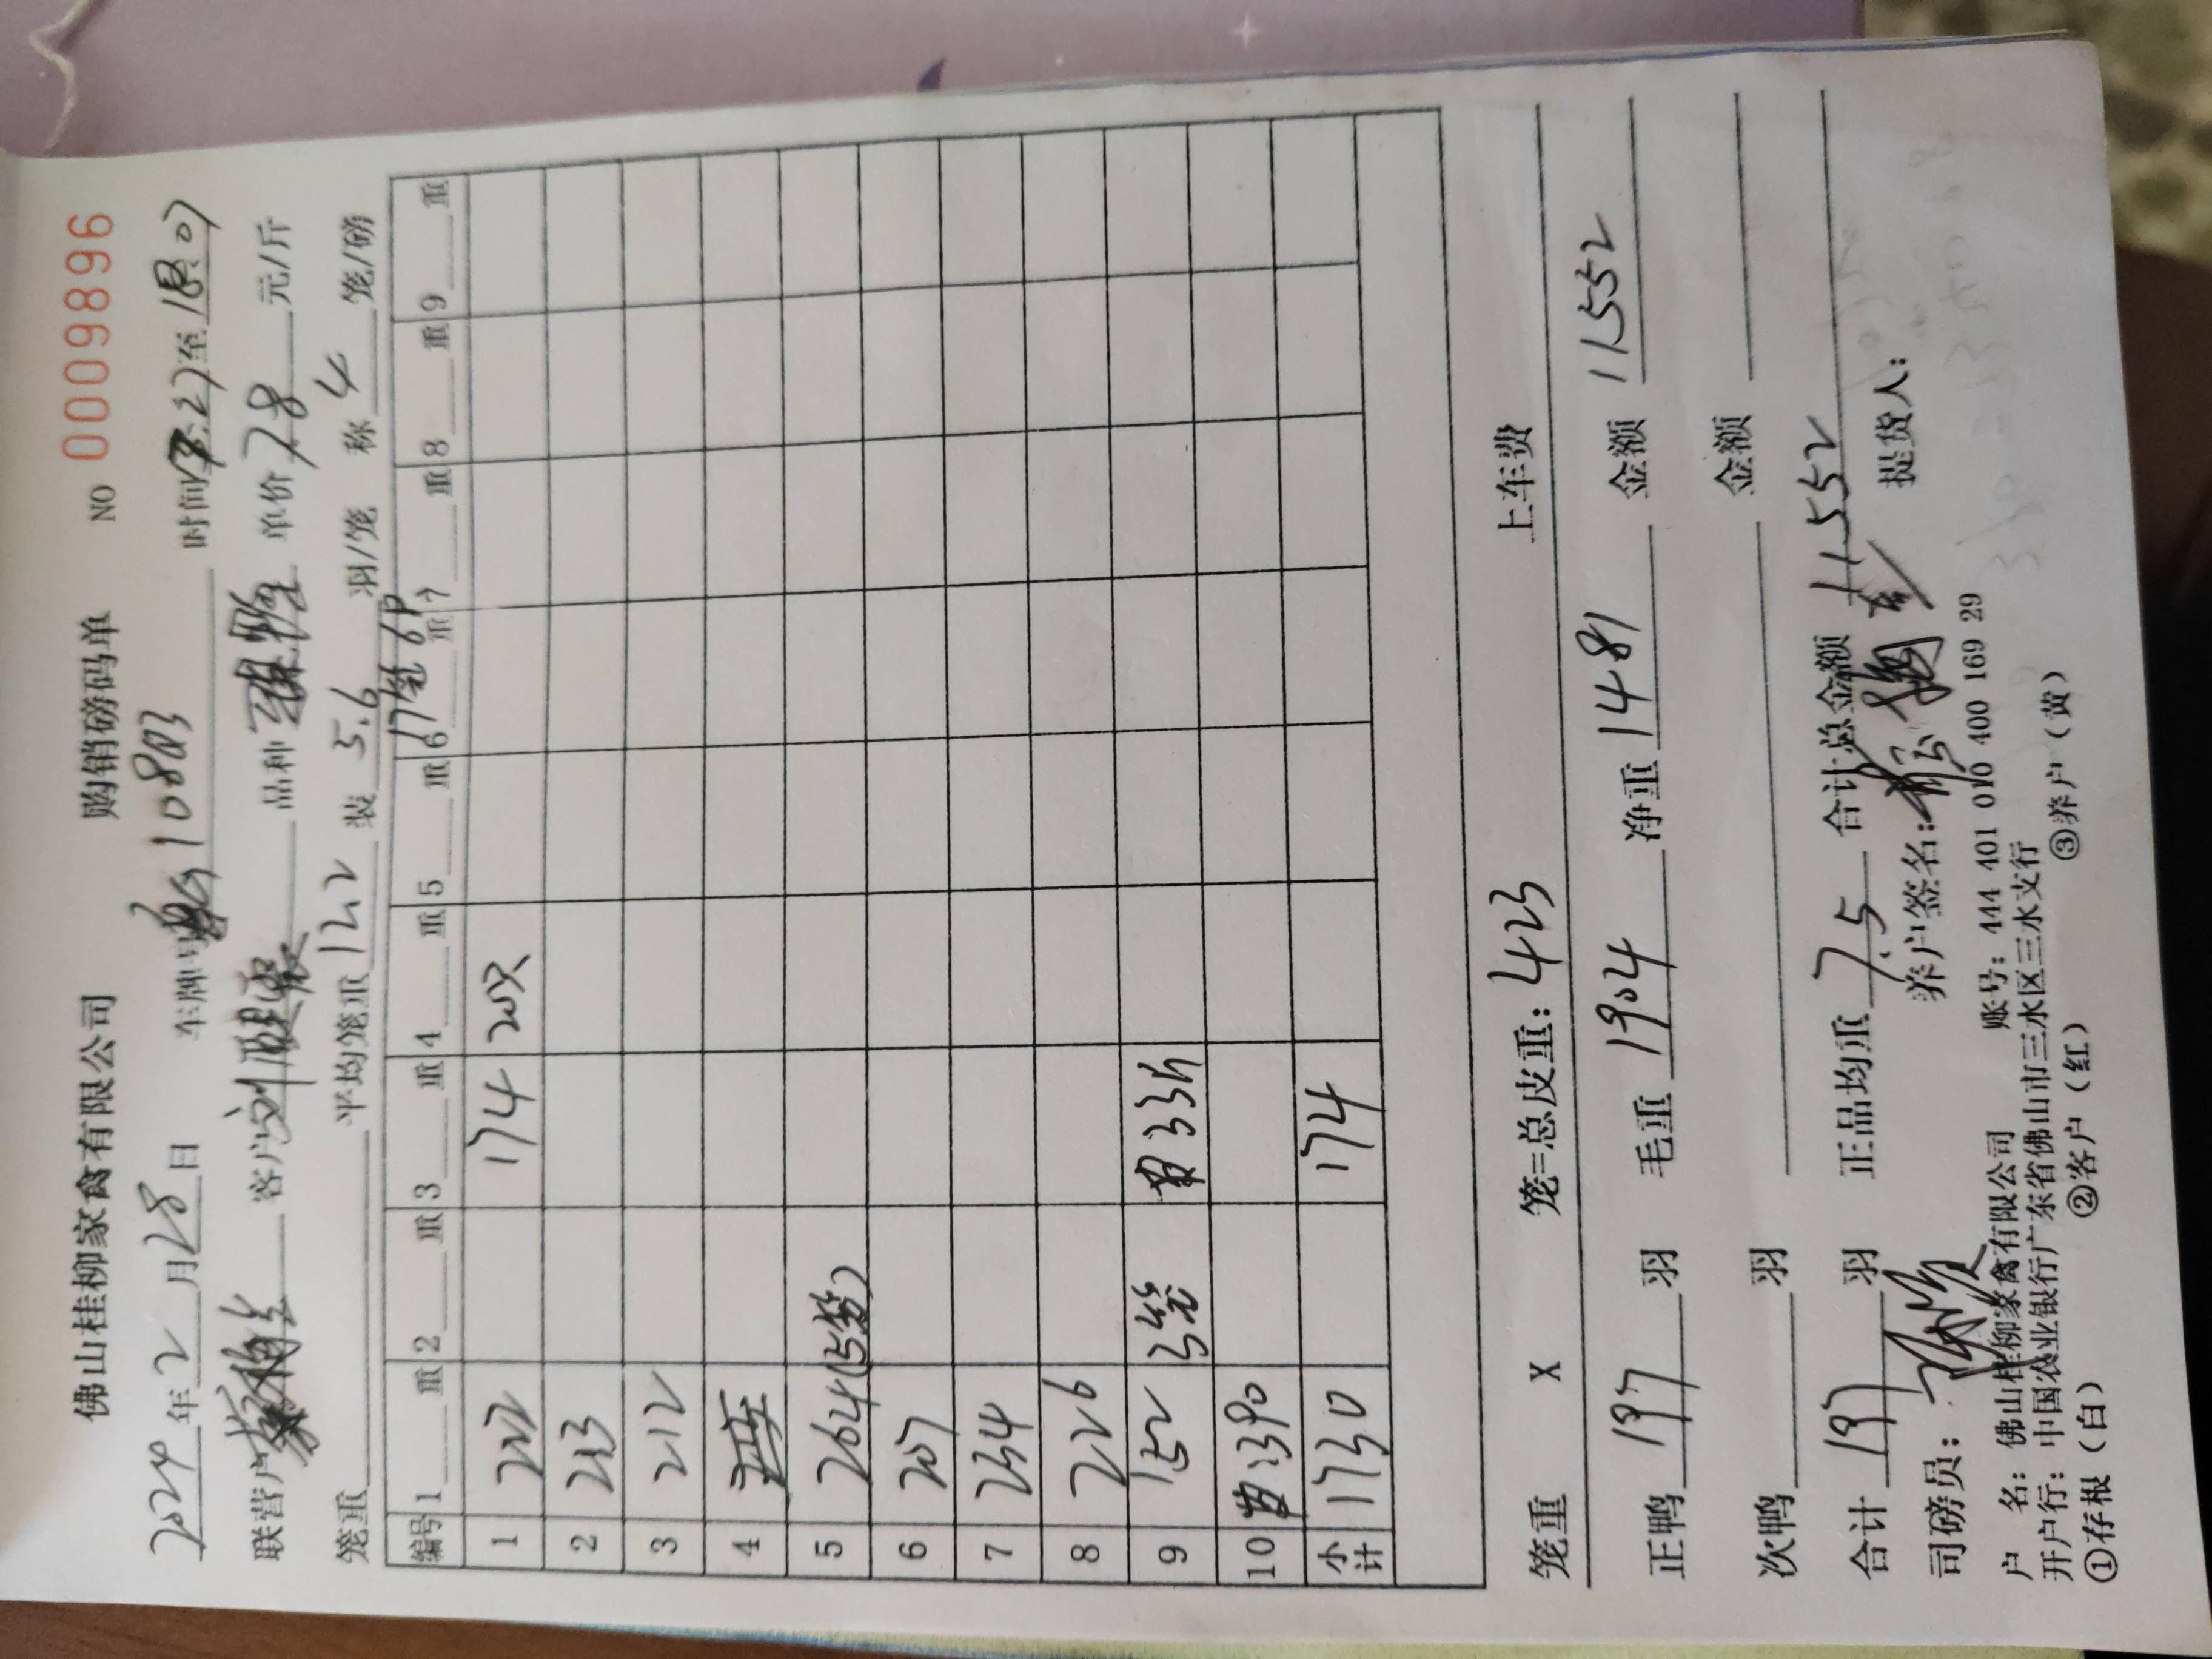 佛山桂柳家禽有限公司 购销磅码单 NO 0009896
2024年2月28日 车牌号 10803 时间 :27至18:07
联营户 客户 刘 品种 单价7.8元/斤
笼重 平均笼重12.2 装5.6羽/笼 称4笼/磅
17笼6P
编号 1 重 2 重 3 重 4 重 5 重 6 重 7 重 8 重 9 重
1 222 174 20只
2 213
3 212
4
5 264(5笼)
6 207
7 234
8 226
9 152 3笼 33只
10
小计 1730 174
笼重 X 笼=总皮重:423 上车费
正鸭197羽 毛重1904 净重1481 金额11552
次鸭 羽 金额
合计197羽 正品均重7.5 合计总金额11552
司磅员: 养户签名: 提货人:
户 名:佛山桂柳家禽有限公司 账号:444 401 010 400 169 29
开户行:中国农业银行广东省佛山市三水区三水支行
①存根(白) ②客户(红) ③养户(黄)